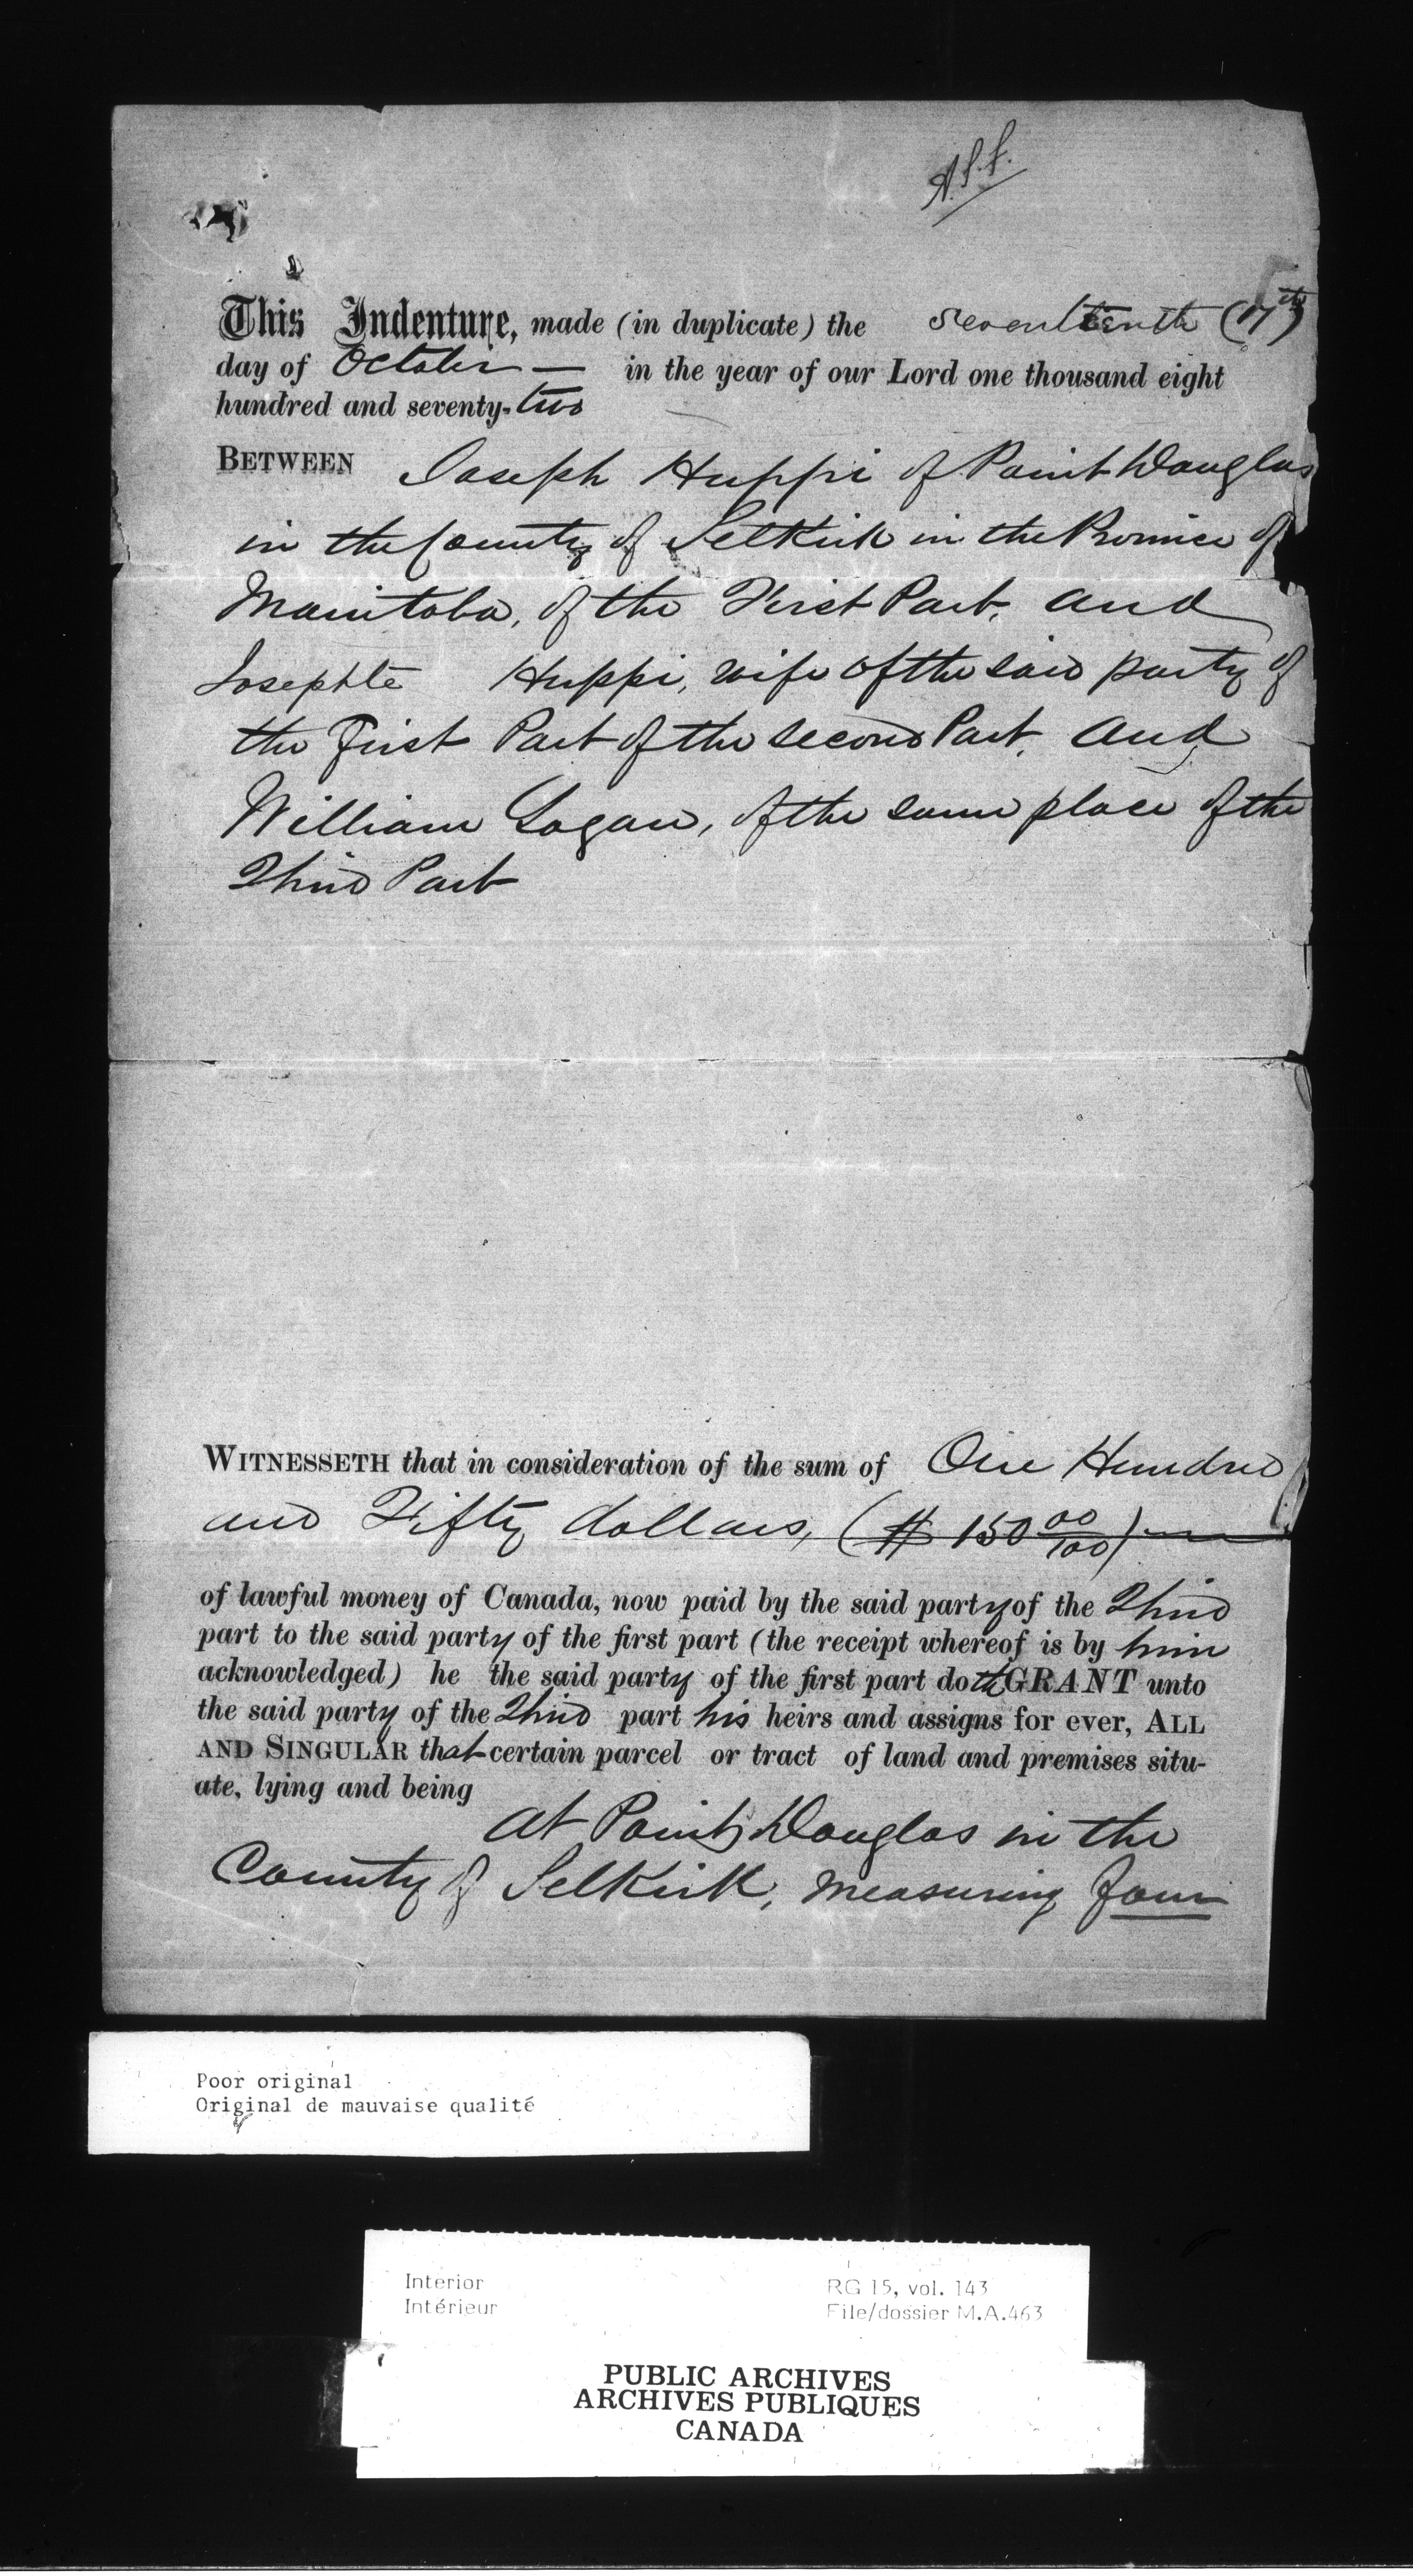 A.S.S.
This Indenture, made (in duplicate) the seventeenth (17th)
day of October — in the year of our Lord one thousand eight
hundred and seventy-two
BETWEEN Joseph Huppi of Point Douglas
in the County of Selkirk in the Province of
Manitoba, of the First Part, and
Josephte Huppi, wife of the said party of
the First Part of the second Part, and
William Logan, of the same place of the
Third Part
WITNESSETH that in consideration of the sum of One Hundred
and Fifty dollars, ($ 150 00/100)
of lawful money of Canada, now paid by the said party of the Third
part to the said party of the first part (the receipt whereof is by him
acknowledged) he the said party of the first part doth GRANT unto
the said party of the Third part his heirs and assigns for ever, ALL
AND SINGULAR that certain parcel or tract of land and premises situ-
ate, lying and being
at Point Douglas in the
County of Selkirk, measuring four
Poor original
Original de mauvaise qualité
Interior RG 15, vol. 143
Intérieur File/dossier M.A.463
PUBLIC ARCHIVES
ARCHIVES PUBLIQUES
CANADA